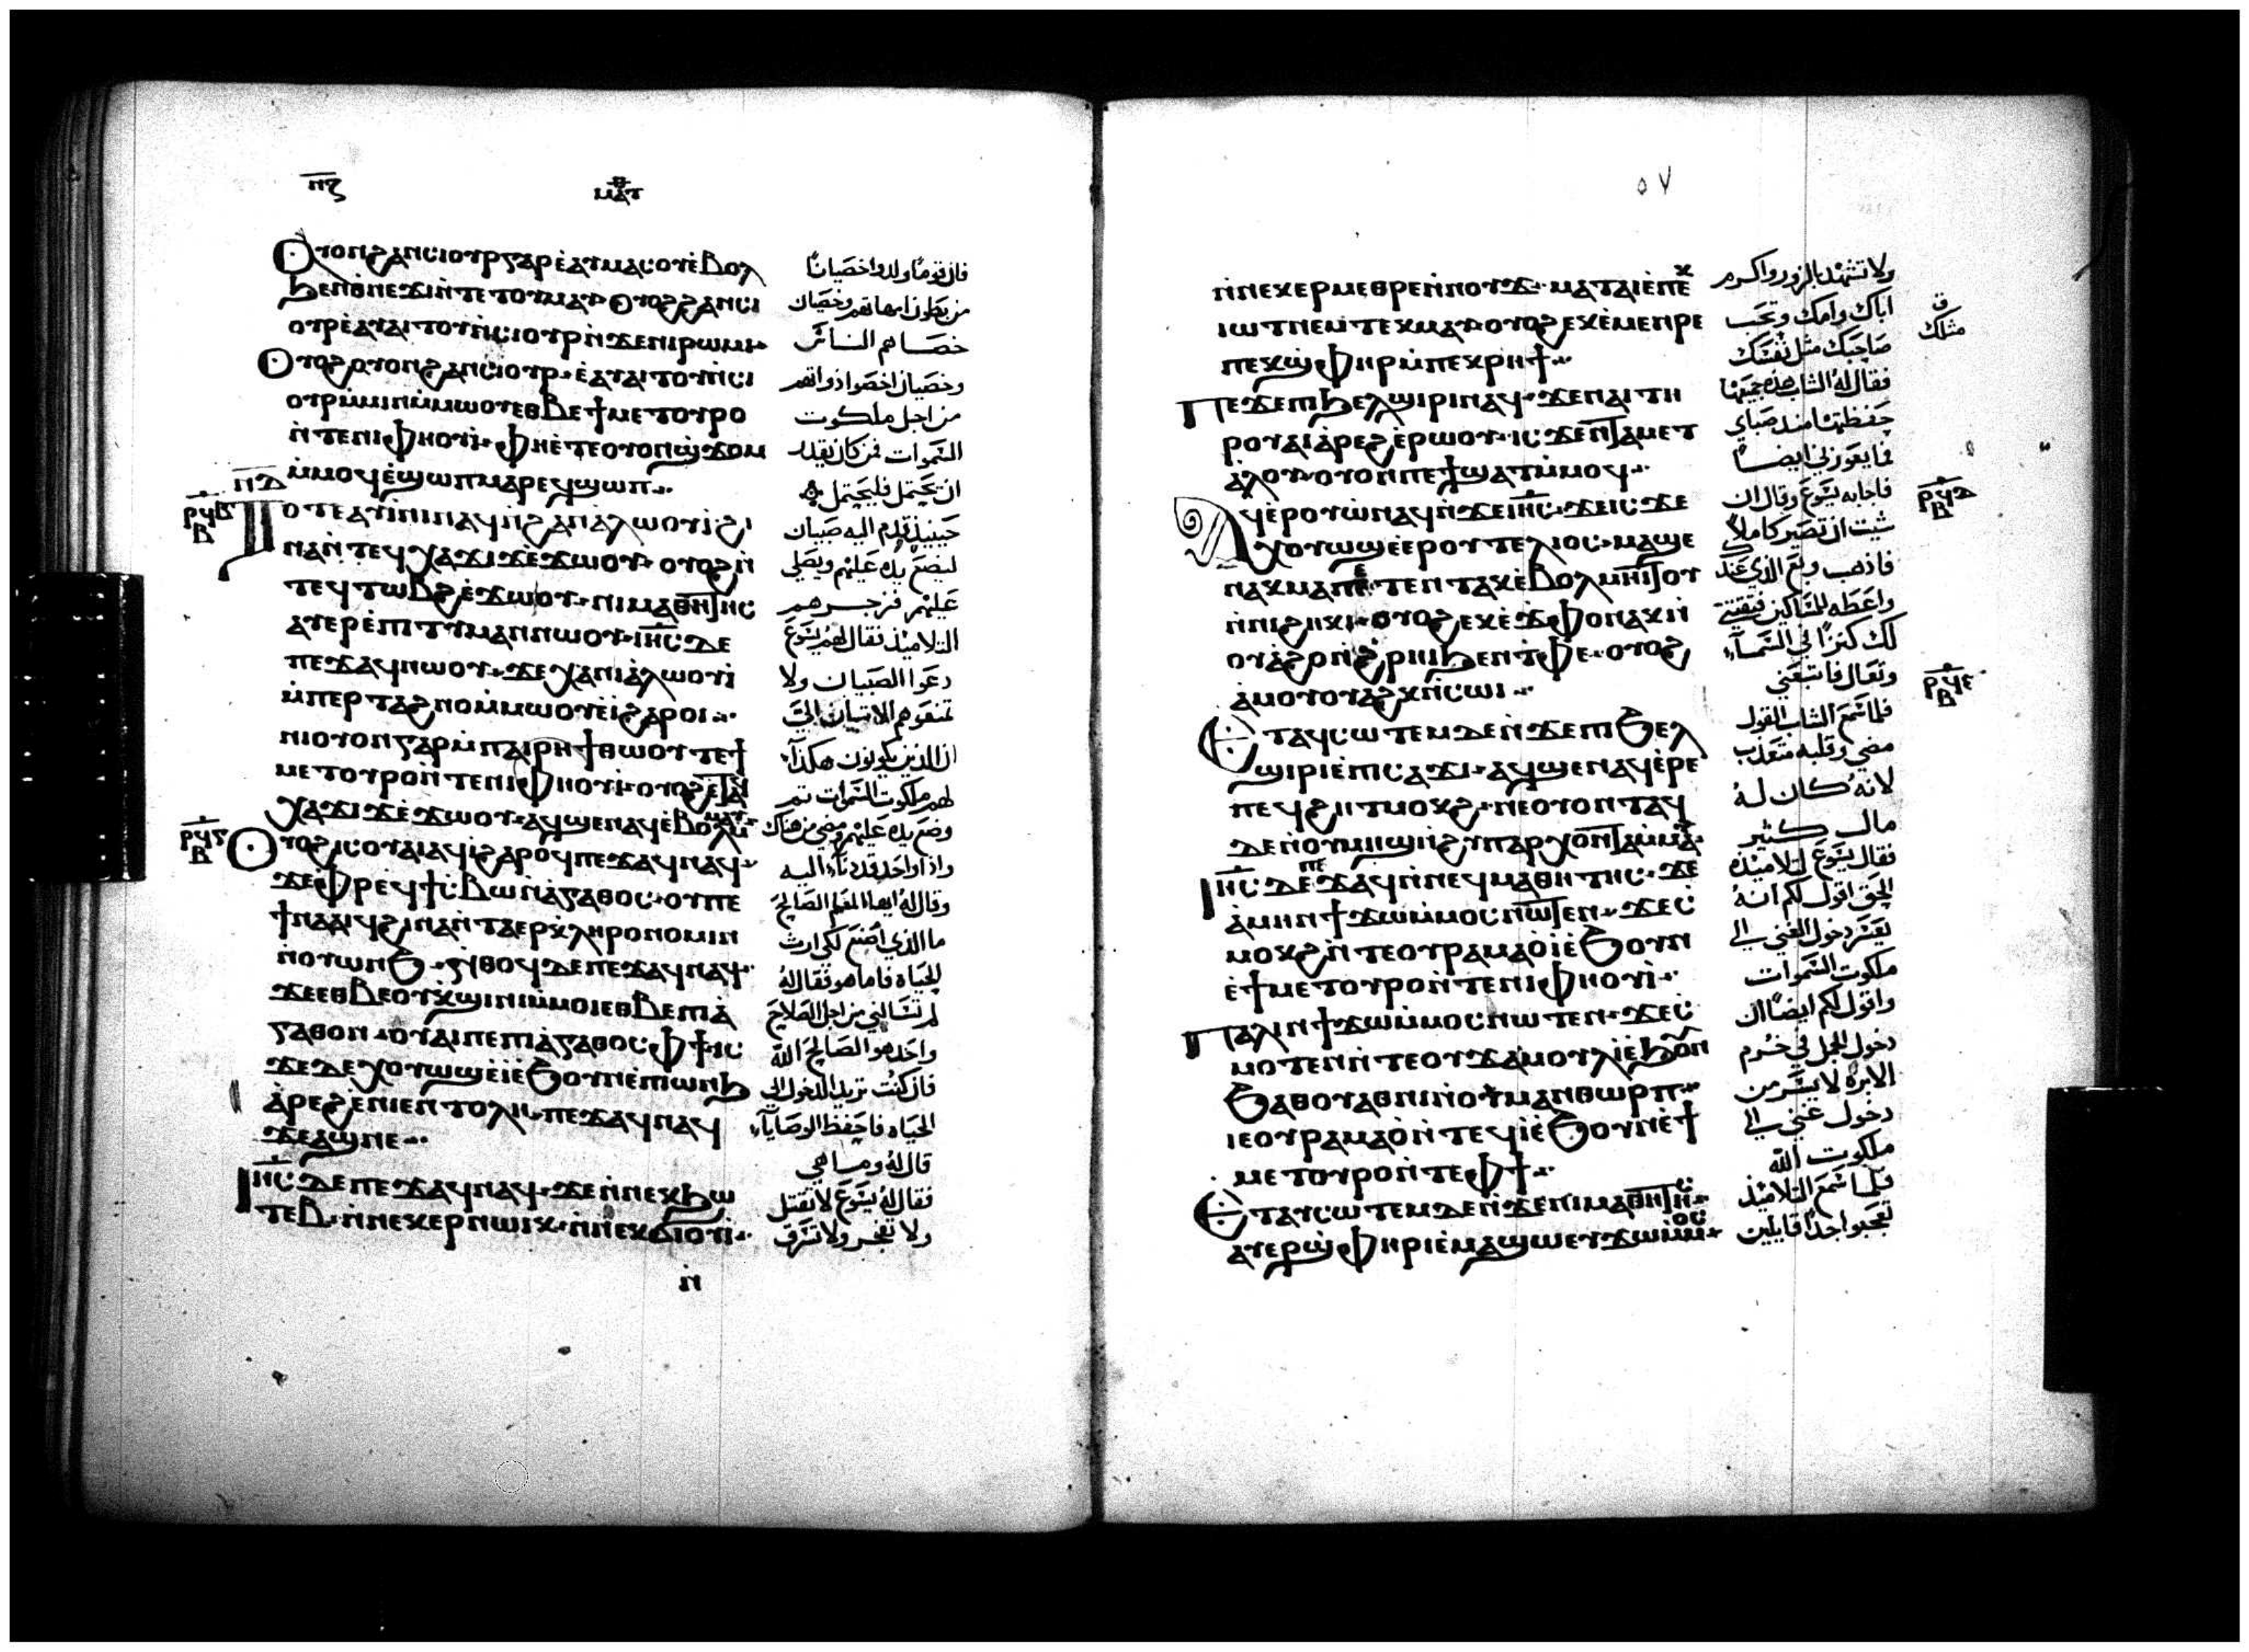 ⲛ̅ⲍ̅
ⲙⲁⲧ
Ⲟⲩⲟⲛϩⲁⲛⲥⲓⲟⲩⲣⲅⲁⲣⲉ̀ⲁⲩⲙⲁⲥⲟⲩⲉ̀ⲃⲟⲗ
ϧⲉⲛⲑⲛⲉϫⲓⲛ̀ⲧⲉⲧⲟⲩⲙⲁⲩ ⲟⲩⲟϩϩⲁⲛⲥⲓ
ⲟⲩⲣⲉ̀ⲁⲩⲁⲓⲧⲟⲩⲛ̀ⲥⲓⲟⲩⲣⲛ̀ϫⲉⲛⲓⲣⲱⲙⲓ
Ⲟⲩⲟϩⲟⲩⲟⲛϩⲁⲛⲥⲓⲟⲩⲣ ⲉ̀ⲁⲩⲁⲓⲧⲟⲩⲛ̀ⲥⲓ
ⲟⲩⲣⲙ̀ⲙⲓⲛⲙ̀ⲙⲱⲟⲩⲉⲑⲃⲉϯⲙⲉⲧⲟⲩⲣⲟ
ⲛ̀ⲧⲉⲛⲓⲫⲏⲟⲩⲓ̀ ⲫⲏⲉ̀ⲧⲉⲟⲩⲟⲛϣ̀ϫⲟⲙ
ⲙ̀ⲙⲟϥⲉ̀ϣⲱⲡⲙⲁⲣⲉϥϣⲱⲡ
ⲛ̅ⲇ̅
ⲣϥⲃ
ⲃ
Ⲧⲟⲧⲉⲁⲩⲓⲛⲓⲛⲁϥⲛ̀ϩⲁⲛⲁ̀ⲗⲱⲟⲩⲓ̀ϩⲓ
ⲛⲁⲛ̀ⲧⲉϥⲭⲁϫⲓϫⲉ̀ϫⲱⲟⲩ ⲟⲩⲟϩⲛ̀
ⲧⲉϥⲧⲱⲃϩⲉ̀ϫⲱⲟⲩ ⲛⲓⲙⲁⲑⲏⲧⲏⲥ
ⲁⲩⲉⲣⲉ̀ⲡⲓⲧⲩⲙⲁⲛⲛⲱⲟⲩ ⲓⲏ̅ⲥ̅ⲇⲉ
ⲡⲉϫⲁϥⲛⲱⲟⲩ ϫⲉⲭⲁⲛⲓⲁ̀ⲗⲱⲟⲩⲓ̀
ⲙ̀ⲡⲉⲣⲧⲁϩⲛⲟⲙ̀ⲙⲱⲟⲩⲉ̀ⲓ̀ϩⲁⲣⲟⲓ
ⲛⲓⲟⲩⲟⲛⲅⲁⲣⲙ̀ⲡⲁⲓⲣⲏϯⲑⲱⲟⲩⲧⲉϯ
ⲙⲉⲧⲟⲩⲣⲟⲛ̀ⲧⲉⲛⲓⲫⲏⲟⲩⲓ̀ ⲟⲩⲟϩⲉⲧⲁϥ
ⲭⲁϫⲓϫⲉ̀ϫⲱⲟⲩ ⲁϥϣⲉⲛⲁϥⲉ̀ⲃⲟⲗⲙ̀ⲙⲁⲩ
ⲣϥⲅ
ⲃ
Ⲟⲩⲟϩⲓⲥⲟⲩⲁⲓⲁϥⲓ̀ϩⲁⲣⲟϥⲡⲉϫⲁϥⲛⲁϥ
ϫⲉⲫⲣⲉϥϯⲥ̀ⲃⲱⲛ̀ⲁ̀ⲅⲁⲑⲟⲥ ⲟⲩⲡⲉ
ϯⲛⲁⲁⲓϥϩⲓⲛⲁⲛ̀ⲧⲁⲉⲣⲕ̀ⲗⲏⲣⲟⲛⲟⲙⲓⲛ
ⲛ̀ⲟⲩⲱⲛϧ ⲛ̀ⲑⲟϥⲇⲉⲡⲉϫⲁϥⲛⲁϥ
ϫⲉⲉⲑⲃⲉⲟⲩⲕ̀ϣⲓⲛⲓⲙ̀ⲙⲟⲓⲉⲑⲃⲉⲡⲓⲁ̀
ⲅⲁⲑⲟⲛ ⲟⲩⲁⲓⲡⲉⲡⲓⲁ̀ⲅⲁⲑⲟⲥ ⲫϯ ⲓⲥ
ϫⲉⲇⲉⲭⲟⲩⲱϣⲉ̀ⲓ̀ⲉ̀ϧⲟⲩⲛⲉ̀ⲡⲱⲛϧ
ⲁ̀ⲣⲉϩⲉ̀ⲛⲓⲉⲛⲧⲟⲗⲏ ⲡⲉϫⲁϥⲛⲁϥ
ϫⲉⲁϣⲛⲉ
Ⲓⲏ̅ⲥ̅ⲇⲉⲡⲉϫⲁϥⲛⲁϥ ϫⲉⲛ̀ⲛⲉⲕϧⲱ
ⲧⲉⲃ ⲛ̀ⲛⲉⲕⲉⲣⲛⲱⲓⲕ ⲛ̀ⲛⲉⲕϭⲓⲟⲩⲓ̀
ⲛ̀
فان قوما ولدوا خصيانا
من بطون امهاتهم وخصيان
خصاهم الناس
وخصيان اخصوا ذواتهم
من اجل ملكوت
السموات فمن كان يقدر
ان يحتمل فليحتمل
حينيذ قدم اليه صبيان
ليضع يده عليهم ويصلي
عليهم فزجرهم
التلاميذ فقال لهم يسوع
دعوا الصبيان ولا
تمنعوهم الاتيان الي
ان الذين يكونون هكذا
لهم ملكوت السموات ثم
وضع يده عليهم ومضي من هناك
واذا واحد قد نا اليه
وقال له ايها المعلم الصالح
ما الذي اصنع لكي ارث
الحياه فاما هو فقال له
لم تسالني من اجل الصلاح
واحد هو الصالح الله
فان كنت تريد الدخول الي
الحياه فاحفظ الوصايا
قال له وما هي
فقال له يسوع لا تقتل
ولا تفجر ولا تسرق
٥٧
ⲛ̀ⲛⲉⲕⲉⲣⲙⲉⲑⲣⲉⲛ̀ⲛⲟⲩϫ ⲙⲁⲧⲁⲓⲉ̀ⲡⲉⲕ
ⲓⲱⲧⲛⲉⲙⲧⲉⲕⲙⲁⲩ ⲟⲩⲟϩⲉⲕⲉ̀ⲙⲉⲛⲣⲉ
ⲡⲉⲕϣ̀ⲫⲏⲣⲙ̀ⲡⲉⲕⲣⲏϯ
Ⲡⲉϫⲉⲡⲓϧⲉⲗϣⲓⲣⲓⲛⲁϥ ϫⲉⲛⲁⲓⲧⲏ
ⲣⲟⲩⲁⲓⲁ̀ⲣⲉϩⲉ̀ⲣⲱⲟⲩ ⲓⲥϫⲉⲛⲧⲁⲙⲉⲧ
ⲁ̀ⲗⲟⲩ ⲟⲩⲟⲛⲡⲉϯϣⲁⲧⲙ̀ⲙⲟϥ
Ⲁϥⲉ̀ⲣⲟⲩⲱ̀ⲛⲁϥⲛ̀ϫⲉⲓⲏ̅ⲥ̅ ϫⲉⲓⲥϫⲉ
ⲭⲟⲩⲱϣⲉ̀ⲉⲣⲟⲩⲧⲉⲗⲓⲟⲥ ⲙⲁϣⲉ
ⲛⲁⲕⲙⲁⲡⲉⲧⲉⲛⲧⲁⲕⲉ̀ⲃⲟⲗⲙⲏⲓⲧⲟⲩ
ⲛ̀ⲛⲓϩⲏⲕⲓ ⲟⲩⲟϩⲉⲕⲉ̀ϫⲫⲟⲛⲁⲕⲛ̀
ⲟⲩⲁ̀ϩⲟⲛ̀ϩ̀ⲣⲏⲓϧⲉⲛⲧ̀ⲫⲉ ⲟⲩⲟϩ
ⲁ̀ⲙⲟⲩⲟⲩⲁϩⲕⲛ̀ⲥⲱⲓ
Ⲉⲧⲁϥⲥⲱⲧⲉⲙⲇⲉⲛ̀ϫⲉⲡⲓϧⲉⲗ
ϣⲓⲣⲓⲉ̀ⲡⲓⲥⲁϫⲓ ⲁϥϣⲉⲛⲁϥⲉ̀ⲣⲉ
ⲡⲉϥϩⲏⲧⲙⲟⲕϩ ⲛⲉⲟⲩⲟⲛⲧⲁϥ
ϫⲉⲛ̀ⲟⲩⲙⲏϣⲛ̀ϩⲩⲡⲁⲣⲭⲟⲛⲧⲁⲙ̀ⲙⲁⲩ
Ⲓⲏ̅ⲥ̅ⲇⲉⲡⲉϫⲁϥⲛ̀ⲛⲉϥⲙⲁⲑⲏⲧⲏⲥ ϫⲉ
ⲁ̀ⲙⲏⲛϯϫⲱⲙ̀ⲙⲟⲥⲛⲱⲧⲉⲛ ϫⲉⲥ̀
ⲙⲟⲕϩⲛ̀ⲧⲉⲟⲩⲣⲁⲙⲁⲟ̀ⲓ̀ⲉ̀ϧⲟⲩⲛ
ⲉ̀ϯⲙⲉⲧⲟⲩⲣⲟⲛ̀ⲧⲉⲛⲓⲫⲏⲟⲩⲓ̀
Ⲡⲁⲗⲓⲛϯϫⲱⲙ̀ⲙⲟⲥⲛⲱⲧⲉⲛ ϫⲉⲥ̀
ⲙⲟⲧⲉⲛⲛ̀ⲧⲉⲟⲩϫⲁⲙⲟⲩⲗⲓ̀ⲉ̀ϧⲟⲩⲛ
ϧⲁⲑⲟⲩⲁⲑⲛⲓⲛ̀ⲟⲩⲙⲁⲛⲑⲱⲣⲡ
ⲓⲉⲟⲩⲣⲁⲙⲁⲟ̀ⲛ̀ⲧⲉϥⲓ̀ⲉ̀ϧⲟⲩⲛⲉ̀ϯ
ⲙⲉⲧⲟⲩⲣⲟⲛ̀ⲧⲉⲫϯ
Ⲉⲧⲁⲩⲥⲱⲧⲉⲙⲇⲉⲛ̀ϫⲉⲛⲓⲙⲁⲑⲏⲧⲏⲥ
ⲁⲩⲉⲣϣ̀ⲫⲏⲣⲓⲉ̀ⲙⲁϣⲱⲉⲩϫⲱⲙ̀ⲙⲟⲥ
ولا تشهد بالزور واكرم
اباك وامك وتحب
صاحبك مثل نفسك
ق
مثلك
فقال له الشاب هذه جميعها
حفظتها منذ صباي
فما يعوزني ايضا
فاجابه يسوع وقال ان
شيت ان تصير كاملا
فاذهب وبع الذي عندك
واعطه للمساكين فتقتني
لك كنزا في السماء
وتعال فاتبعني
فلما سمع الشاب القول
مضي وقلبه متعذب
لانه كان له
مال كثير
فقال يسوع لتلاميذه
الحق اقول لكم انه
يعسر دخول الغني الي
ملكوت السموات
واقول لكم ايضا ان
دخول الجمل في خرم
الابره لايسر من
دخول غني الي
ملكوت الله
فلما سمع التلاميذ
تعجبوا جدا قايلين
ⲣϥⲇ
ⲃ
ⲣϥⲉ
ⲃ